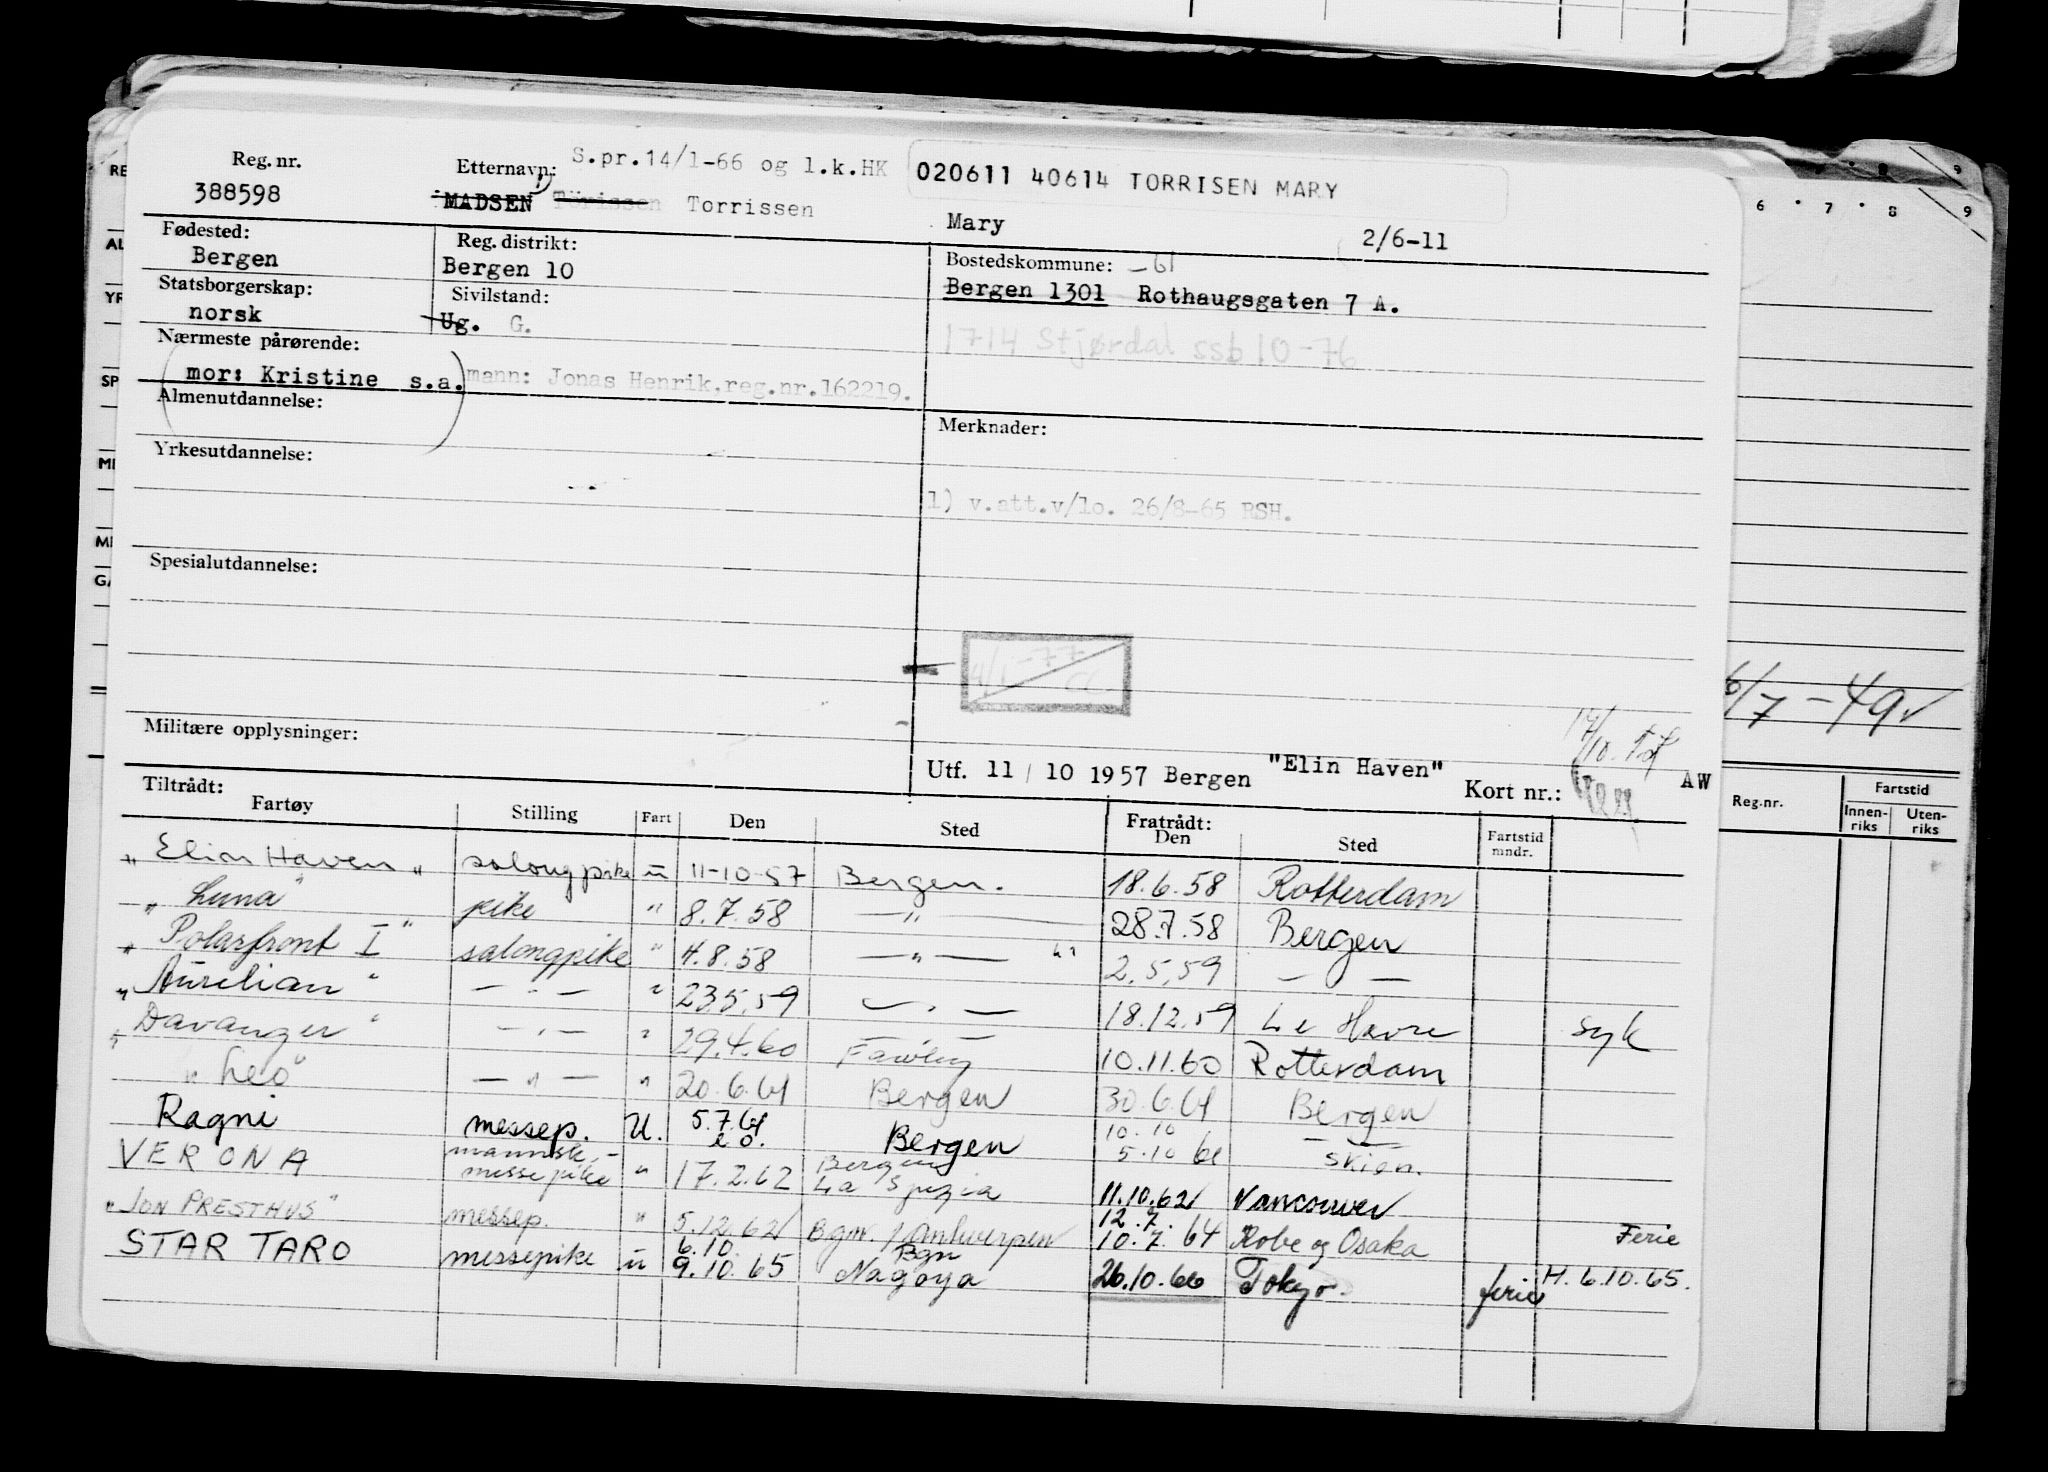 Reg. nr.
388598
Etternavn: S.pr.14/1-66 og l.k.HK
020611 40614 TORRISEN MARY
MADSEN Törissen Torrissen
Mary 2/6-11
Fødested:
Bergen
Reg. distrikt:
Bergen 10
Bostedskommune: -61
Bergen 1301 Rothaugsgaten 7 A.
Statsborgerskap:
norsk
Sivilstand:
Ug. G.
1714 Stjørdal ssb 10-76
Nærmeste pårørende:
mor: Kristine s.a. mann: Jonas Henrik,reg.nr.162219.
Almenutdannelse:
Merknader:
Yrkesutdannelse:
1) v.att.v/lo. 26/8-65 RSH.
Spesialutdannelse:
4/1-77
CC.
6/7-49
Militære opplysninger:
Utf. 11/10 1957 Bergen "Elin Haven" Kort nr.: AW
Tiltrådt:
Fartøy Stilling Fart Den Sted Fratrådt: Den Sted Fartstid mndr.
Reg.nr. Fartstid
Innen-riks Uten-riks
"Elin Haven" salongpike u 11-10-57 Bergen. 18.6.58 Rotterdam
"Luna" pike " 8.7.58 — " — 28.7.58 Bergen
"Polarfront I" salongpike " 4.8.58 — " — 2.5.59 — —
"Aurelian" — " — " 23.5.59 — " — 18.12.59 Le Havre syk
"Davanger" — " — " 29.4.60 Fawley 10.11.60 Rotterdam
"Leo" — " — " 20.6.61 Bergen 30.6.61 Bergen
Ragni messep. U. 5.7.61 Bergen 10.10 5.10 61 Skien.
VERONA mannsk.-messepike " 17.2.62 Bergen La Spezia 11.10.62 Vancouver
"JON PRESTHUS" messep. " 5.12.62 Bgn. / Antwerpen 12.7. 10.7.64 Kobe og Osaka Ferie
STAR TARO messepike u 6.10. 9.10.65 Bgn Nagoya 26.10.66 Tokyo. ferie H. 6.10.65.